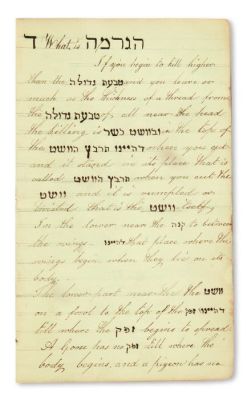 ד "What is הגרמה
If you begin to kill higher
than the טבעת גדולה and you leave as
much as the thickness of a thread from
the טבעת גדולה, all near the head
the killing is כשר ובוושט the top of
the דהיינו תרבץ הוושט where you cut
and it stays in its place that is
called תרבץ הוושט when you cut the
וושט and it is crumpled or
twisted that is the וושט itself
For the lower near the קנה between
the wings דהיינו that place where the
wings begin when they lie on its
body.
The lower part near the וושט
on a fowl to the top of the זפק
till where the זפק begins to spread.
A Goose has no זפק till where the
body begins, and a pigeon has no